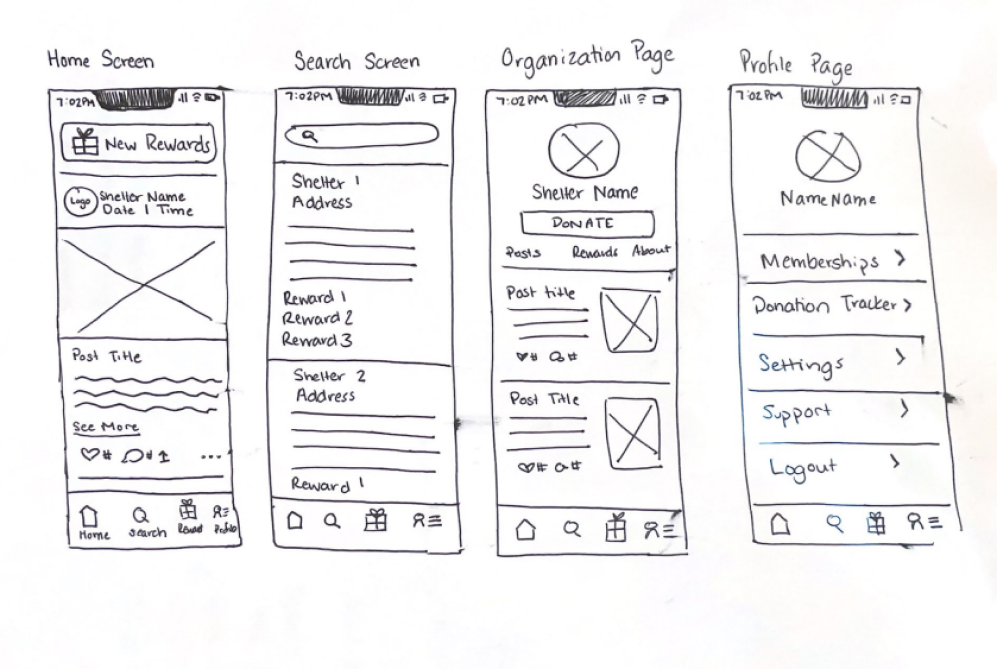 Home Screen
7:02PM
New Rewards
Logo
Shelter Name
Date | Time
Post Title
See More
# #
...
Home Search Reward Profile
Search Screen
7:02PM
Shelter 1
Address
Reward 1
Reward 2
Reward 3
Shelter 2
Address
Reward 1
Organization Page
7:02PM
Shelter Name
DONATE
Posts Rewards About
Post title
# #
Post Title
# #
Profile Page
7:02PM
NameName
Memberships >
Donation Tracker >
Settings >
Support >
Logout >